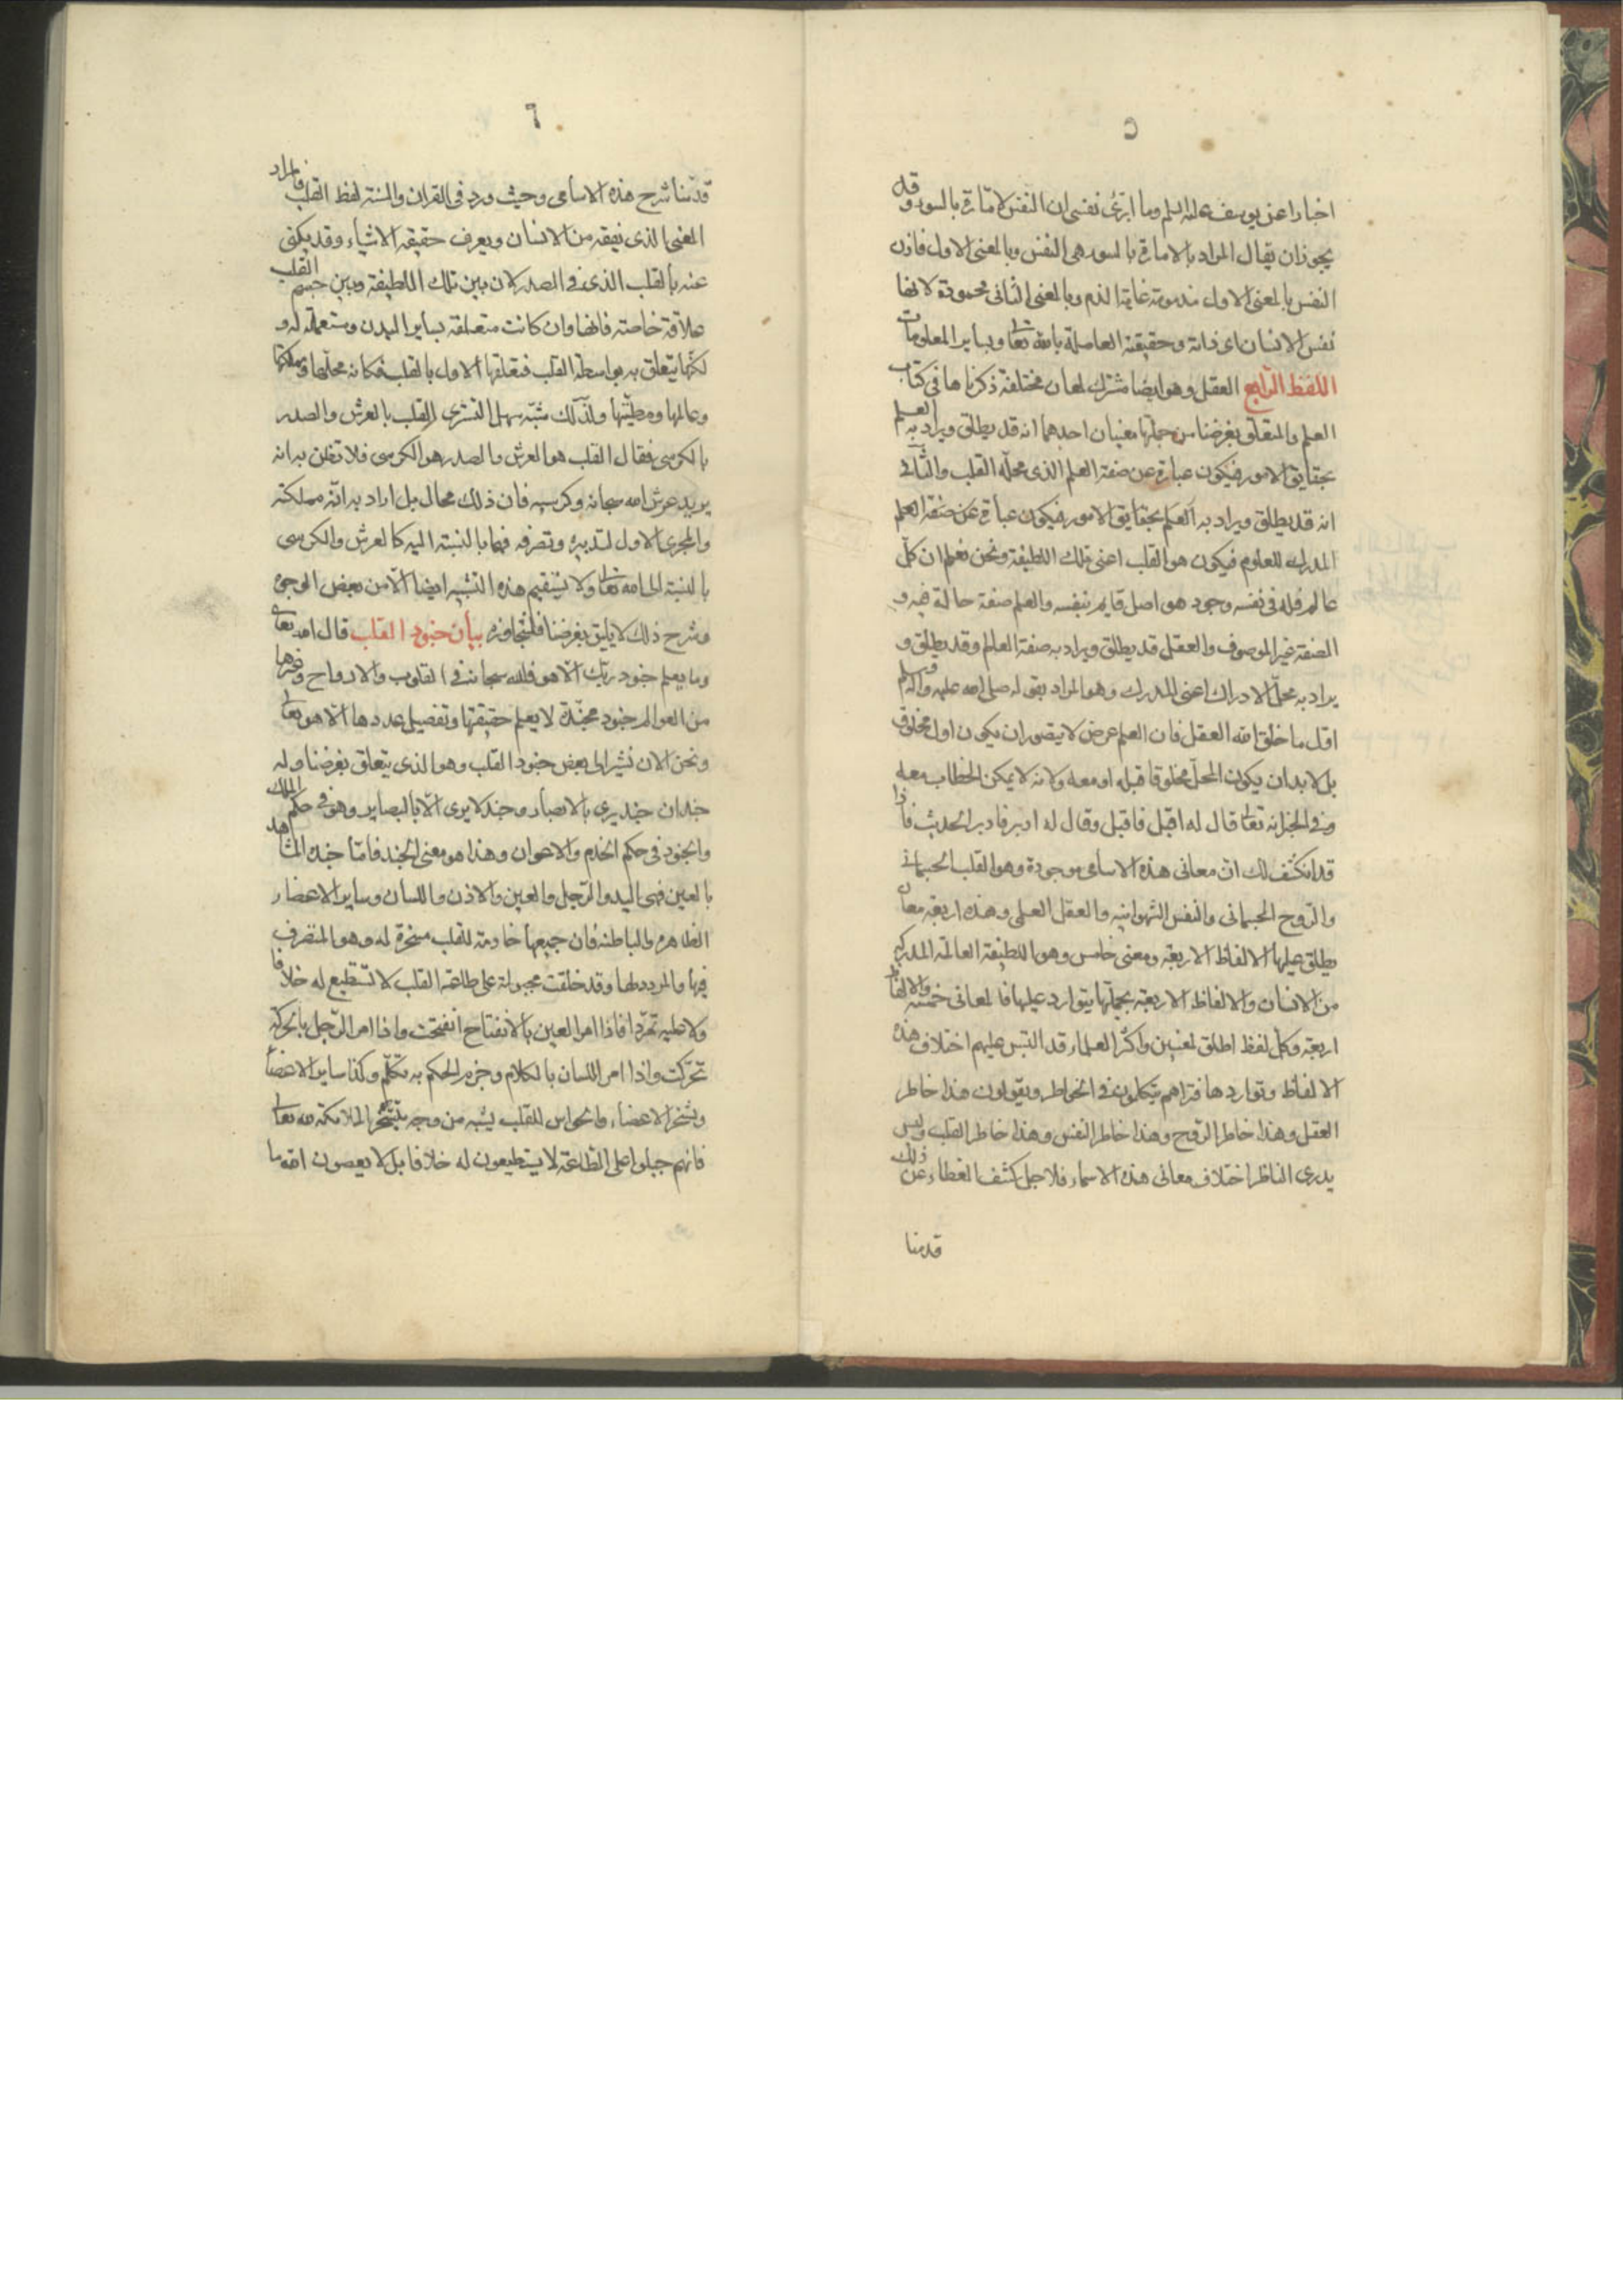 ٥
اخبارا عن يوسف عليه السلم وما ابرئ نفسى ان النفس لامّارة بالسوء وقد
يجوز ان يقال المراد بالامارة بالسوء هى النفس وبالمعنى الاول فاذن
النفس بالمعنى الاول مذمومة غاية الذم وبالمعنى الثانى محمودة لانها
نفس الانسان اى ذاته وحقيقته العاملة بالله تعا وبساير المعلومات
اللفظ الرّابع العقل وهو ايضا مشترك لمعان مختلفة ذكرناها فى كتاب
العلم والمتعلق بغرضنا من جملتها معنيان احدهما انه قد يطلق ويراد به العلم
بحقايق الامور فيكون عبارة عن صفة العلم الذى محلّه القلب والثانى
انه قد يطلق ويراد به العلم بحقايق الامور فيكون عبارة عن صفة العلم
المدرك للعلوم فيكون هو القلب اعنى تلك اللطيفة ونحن نعلم ان كلّ
عالم فله فى نفسه وجود هو اصل قايم بنفسه والعلم صفة حالة فيه و
الصفة غير الموصوف والعقل قد يطلق ويراد به صفة العالم وقد يطلق و
يراد به محلّ الادراك اعنى المدرك وهو المراد بقوله صلى الله عليه واله وسلم
اوّل ما خلق الله العقل فان العلم عرض لا يتصور ان يكون اول مخلوق
بل لا بد ان يكون المحلّ مخلوقا قبله او معه ولانه لا يمكن الخطاب معه
وفى الخبر انه تعا قال له اقبل فاقبل وقال له ادبر فادبر الحديث فاذا
قد انكشف لك انّ معانى هذه الاسامى موجودة وهو القلب الجسمانى
والرّوح الجسمانى والنفس الشهوانيه والعقل العلمى وهذه اربعة معان
يطلق عليها الالفاظ الاربعة ومعنى خامس وهو اللطيفة العالمة المدركه
من الانسان والالفاظ الاربعة بجملتها يتوارد عليها فالمعانى خمسة والالفاظ
اربعة وكلّ لفظ اطلق لمعنيين واكثر العلماء قد التبس عليهم اختلاف هذه
الالفاظ وتواردها فتراهم يتكلمون فى الخواطر ويقولون هذا خاطر
العقل وهذا خاطر الرّوح وهذا خاطر النفس وهذا خاطر القلب وليس
يدرى الناظر اختلاف معانى هذه الاسماء فلاجل كشف الغطاء عن ذلك
قدمنا
٦
قدّمنا شرح هذه الاسامى وحيث ورد فى القران والسنة لفظ القلب فالمراد
المعنى الذى يفقه من الانسان ويعرف حقيقة الاشياء وقد يكنى
عنه بالقلب الذى فى الصدر لان بين تلك اللطيفة وبين جسم القلب
علاقة خاصة فانها وان كانت متعلقة بساير البدن ومستعملة له و
لكنّها يتعلق به بواسطة القلب فتعلقها الاول بالقلب فكانه محلّها ومملكتها
وعالمها ومطيّتها ولذلك شبّه سهل التسترى القلب بالعرش والصدر
بالكرسى فقال القلب هو العرش والصدر هو الكرسى فلا تظن به انه
يريد عرش الله سبحانه وكرسيه فان ذلك محال بل اراد به انّه مملكته
والمجرى الاول لتدبيره وتصرفه فهما بالنسبة اليه كالعرش والكرسى
بالنسبة الى الله تعا ولا يستقيم هذه التشبيه ايضا الّا من بعض الوجوه
وشرح ذلك لا يليق بغرضنا فلنتجاوزه بيان جنود القلب قال الله تعالى
وما يعلم جنود ربك الّا هو فلله سبحانه فى القلوب والارواح وغيرها
من العوالم جنود مجنّدة لا يعلم حقيقتها وتفصيل عددها الّا هو تعا
ونحن الان نشير الى بعض جنود القلب وهو الذى يتعلق بغرضنا وله
جندان جند يرى بالابصار وجند لا يرى الّا بالبصاير وهو فى حكم الملك
والجنود فى حكم الخدم والاعوان وهذا هو معنى الجند فامّا جنده المشاهد
بالعين فهى اليد والرّجل والعين والاذن واللسان وساير الاعضاء
الظاهره والباطنة فان جميعها خادمة للقلب مسخرة له وهو المتصرف
فيها والمردد لها وقد خلقت مجبولة على طاعة القلب لا تستطيع له خلافا
ولا عليه تمرّدا فاذا امر العين بالانفتاح انفتحت واذا امر الرّجل بالحركة
تحرّكت واذا امر اللسان بالكلام وجزم الحكم به تكلّم وكذا ساير الاعضاء
وتسخر الاعضاء والحواس للقلب يشبه من وجه تسخّر الملائكة لله تعا
فانهم جبلوا على الطّاعة لا يستطيعون له خلافا بل لا يعصون الله ما